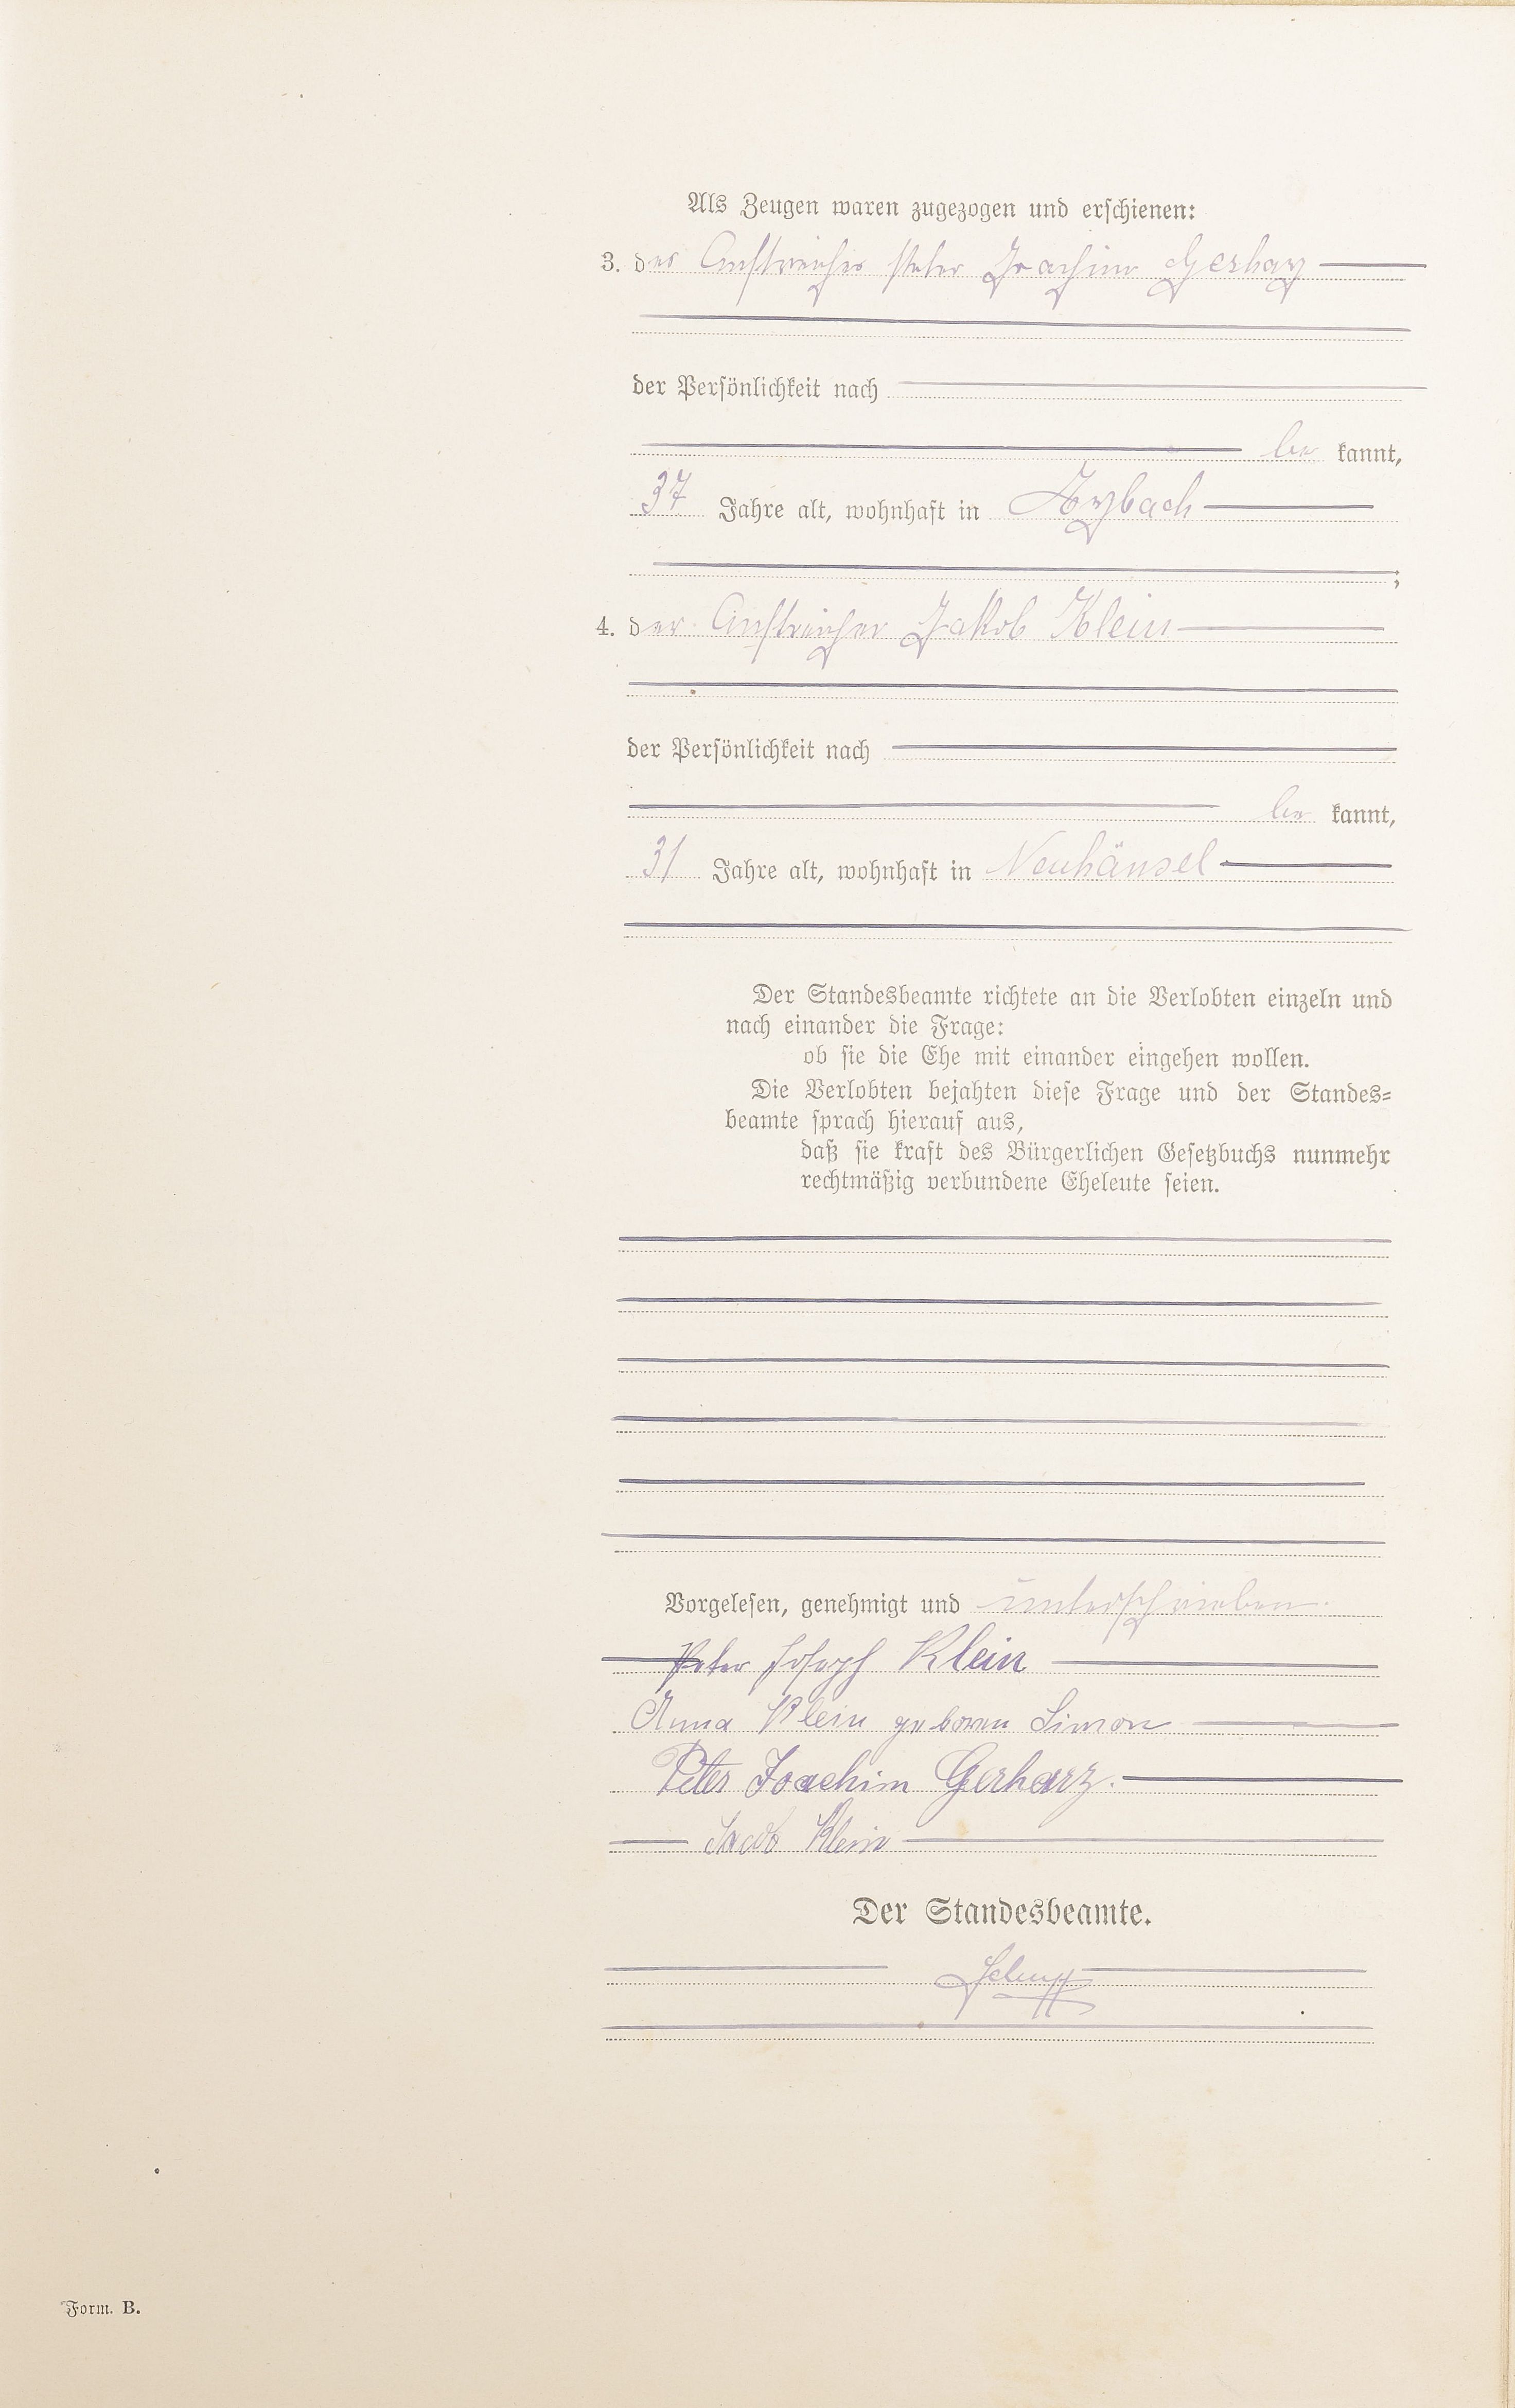 Als Zeugen waren zugezogen und erschienen:
3. der Anstreicher Peter Joachim Gerharz
der Persönlichkeit nach
be kannt,
37 Jahre alt, wohnhaft in
4. der Anstreicher Jakob Klein
der Persönlichkeit nach
be kannt,
31 Jahre alt, wohnhaft in Neuhäusel
Der Standesbeamte richtete an die Verlobten einzeln und
nach einander die Frage:
ob sie die Ehe mit einander eingehen wollen.
Die Verlobten bejahten diese Frage und der Standes=
beamte sprach hierauf aus,
daß sie kraft des Bürgerlichen Gesetzbuchs nunmehr
rechtmäßig verbundene Eheleute seien.
Vorgelesen, genehmigt und unterschrieben.
Peter Joseph Klein
Anna Klein geboren Simon
Peter Joachim Gerharz.
Jacob Klein
Der Standesbeamte.
Form. B.